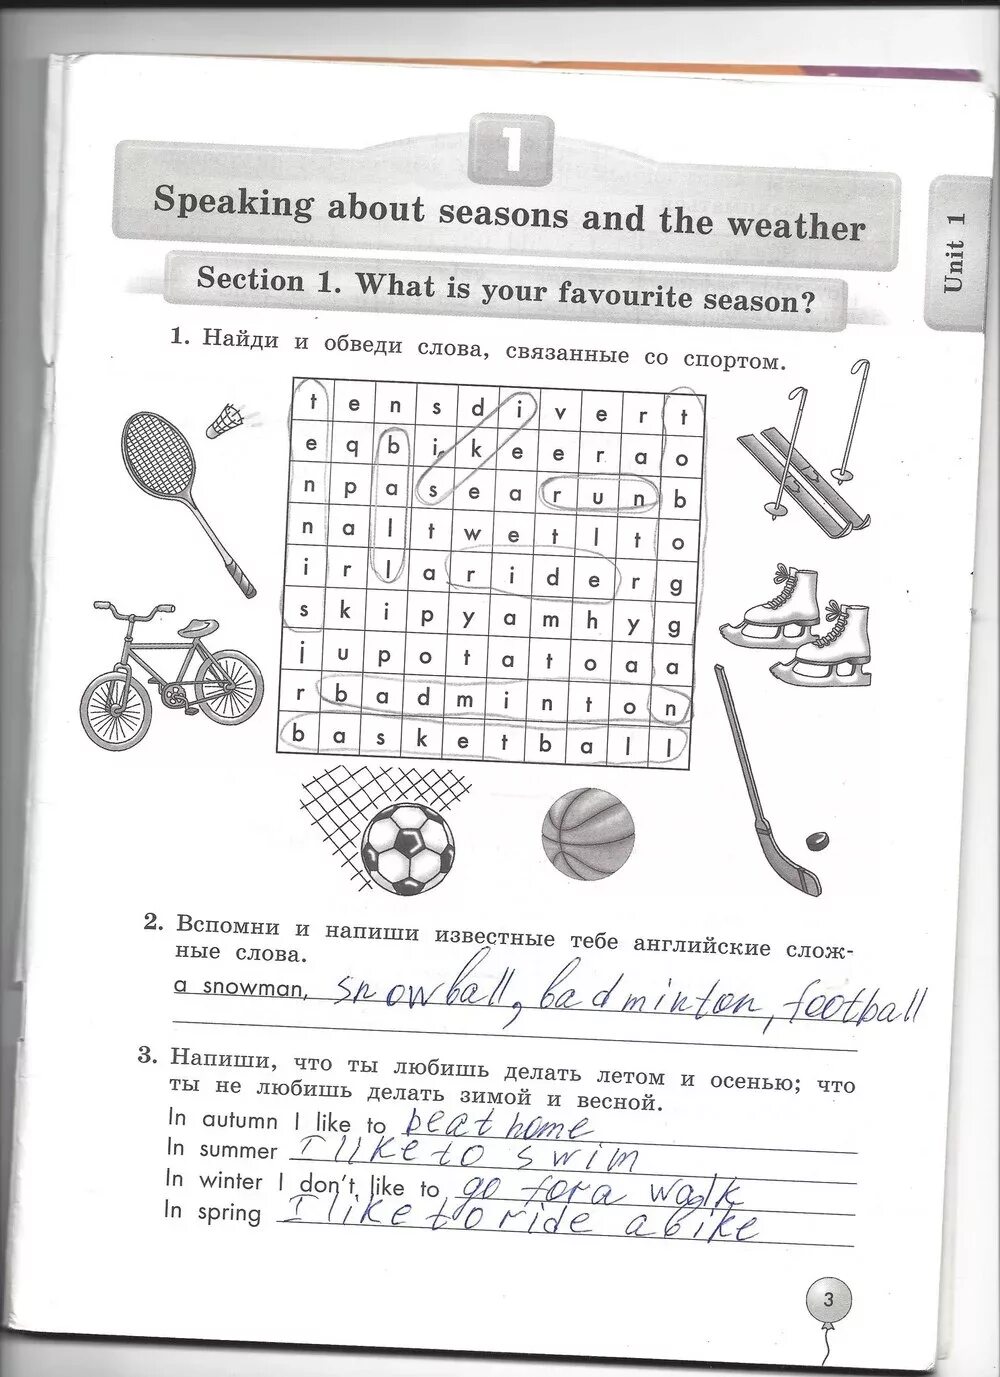 1
Speaking about seasons and the weather
Unit 1
Section 1. What is your favourite season?
1. Найди и обведи слова, связанные со спортом.
t e n s d i v e r t
e q b i k e e r a o
n p a s e a r u n b
n a l t w e t l t o
i r l a r i d e r g
s k i p y a m h y g
j u p o t a t o a a
r b a d m i n t o n
b a s k e t b a l l
2. Вспомни и напиши известные тебе английские слож-
ные слова.
a snowman, snowball, badminton, football
3. Напиши, что ты любишь делать летом и осенью; что
ты не любишь делать зимой и весной.
In autumn I like to be at home
In summer I like to swim
In winter I don't like to go for a walk
In spring I like to ride a bike
3